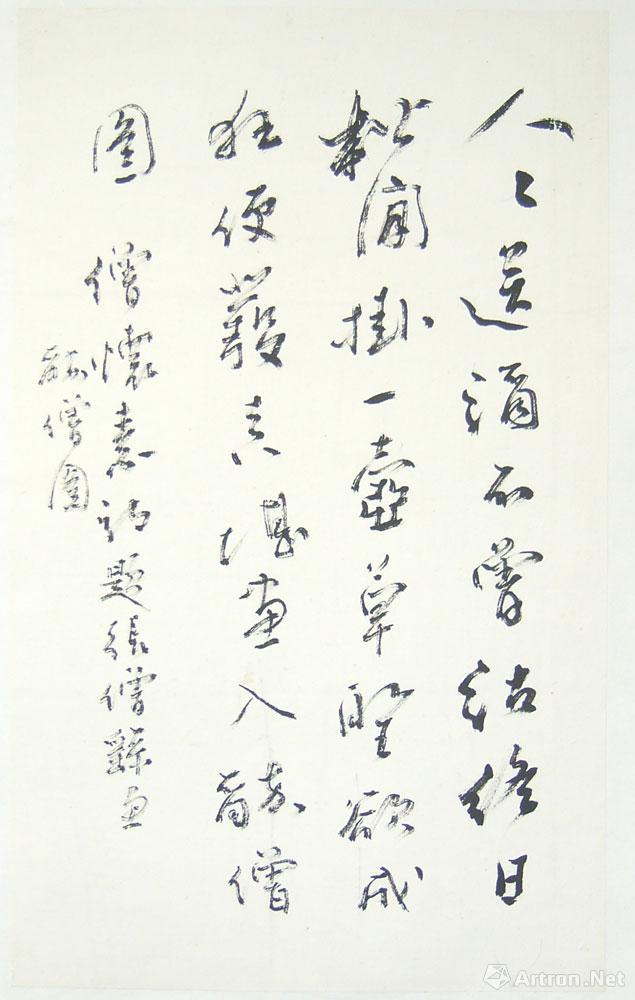 人々送酒不曾沽終日
松間掛一壺草聖欲成
狂便發真堪畫入醉僧
圖 僧懷素詩題張僧繇畫
醉僧圖
Artron.Net